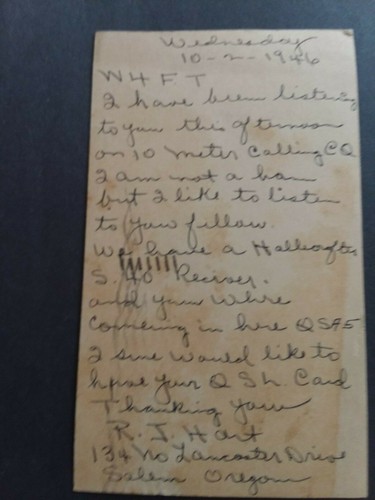 Wednesday
10-2-1946
W4FT
I have been listening
to you this afternoon
on 10 meter calling CQ
I am not a ham
but I like to listen
to you fellow.
We have a Hallicrafter
S. 40 Reciver.
and your
comeing in here QSA5
I sure would like to
have your QSL. Card
Thanking you
R. J. Hart
134 No Lancaster Drive
Salem Oregon